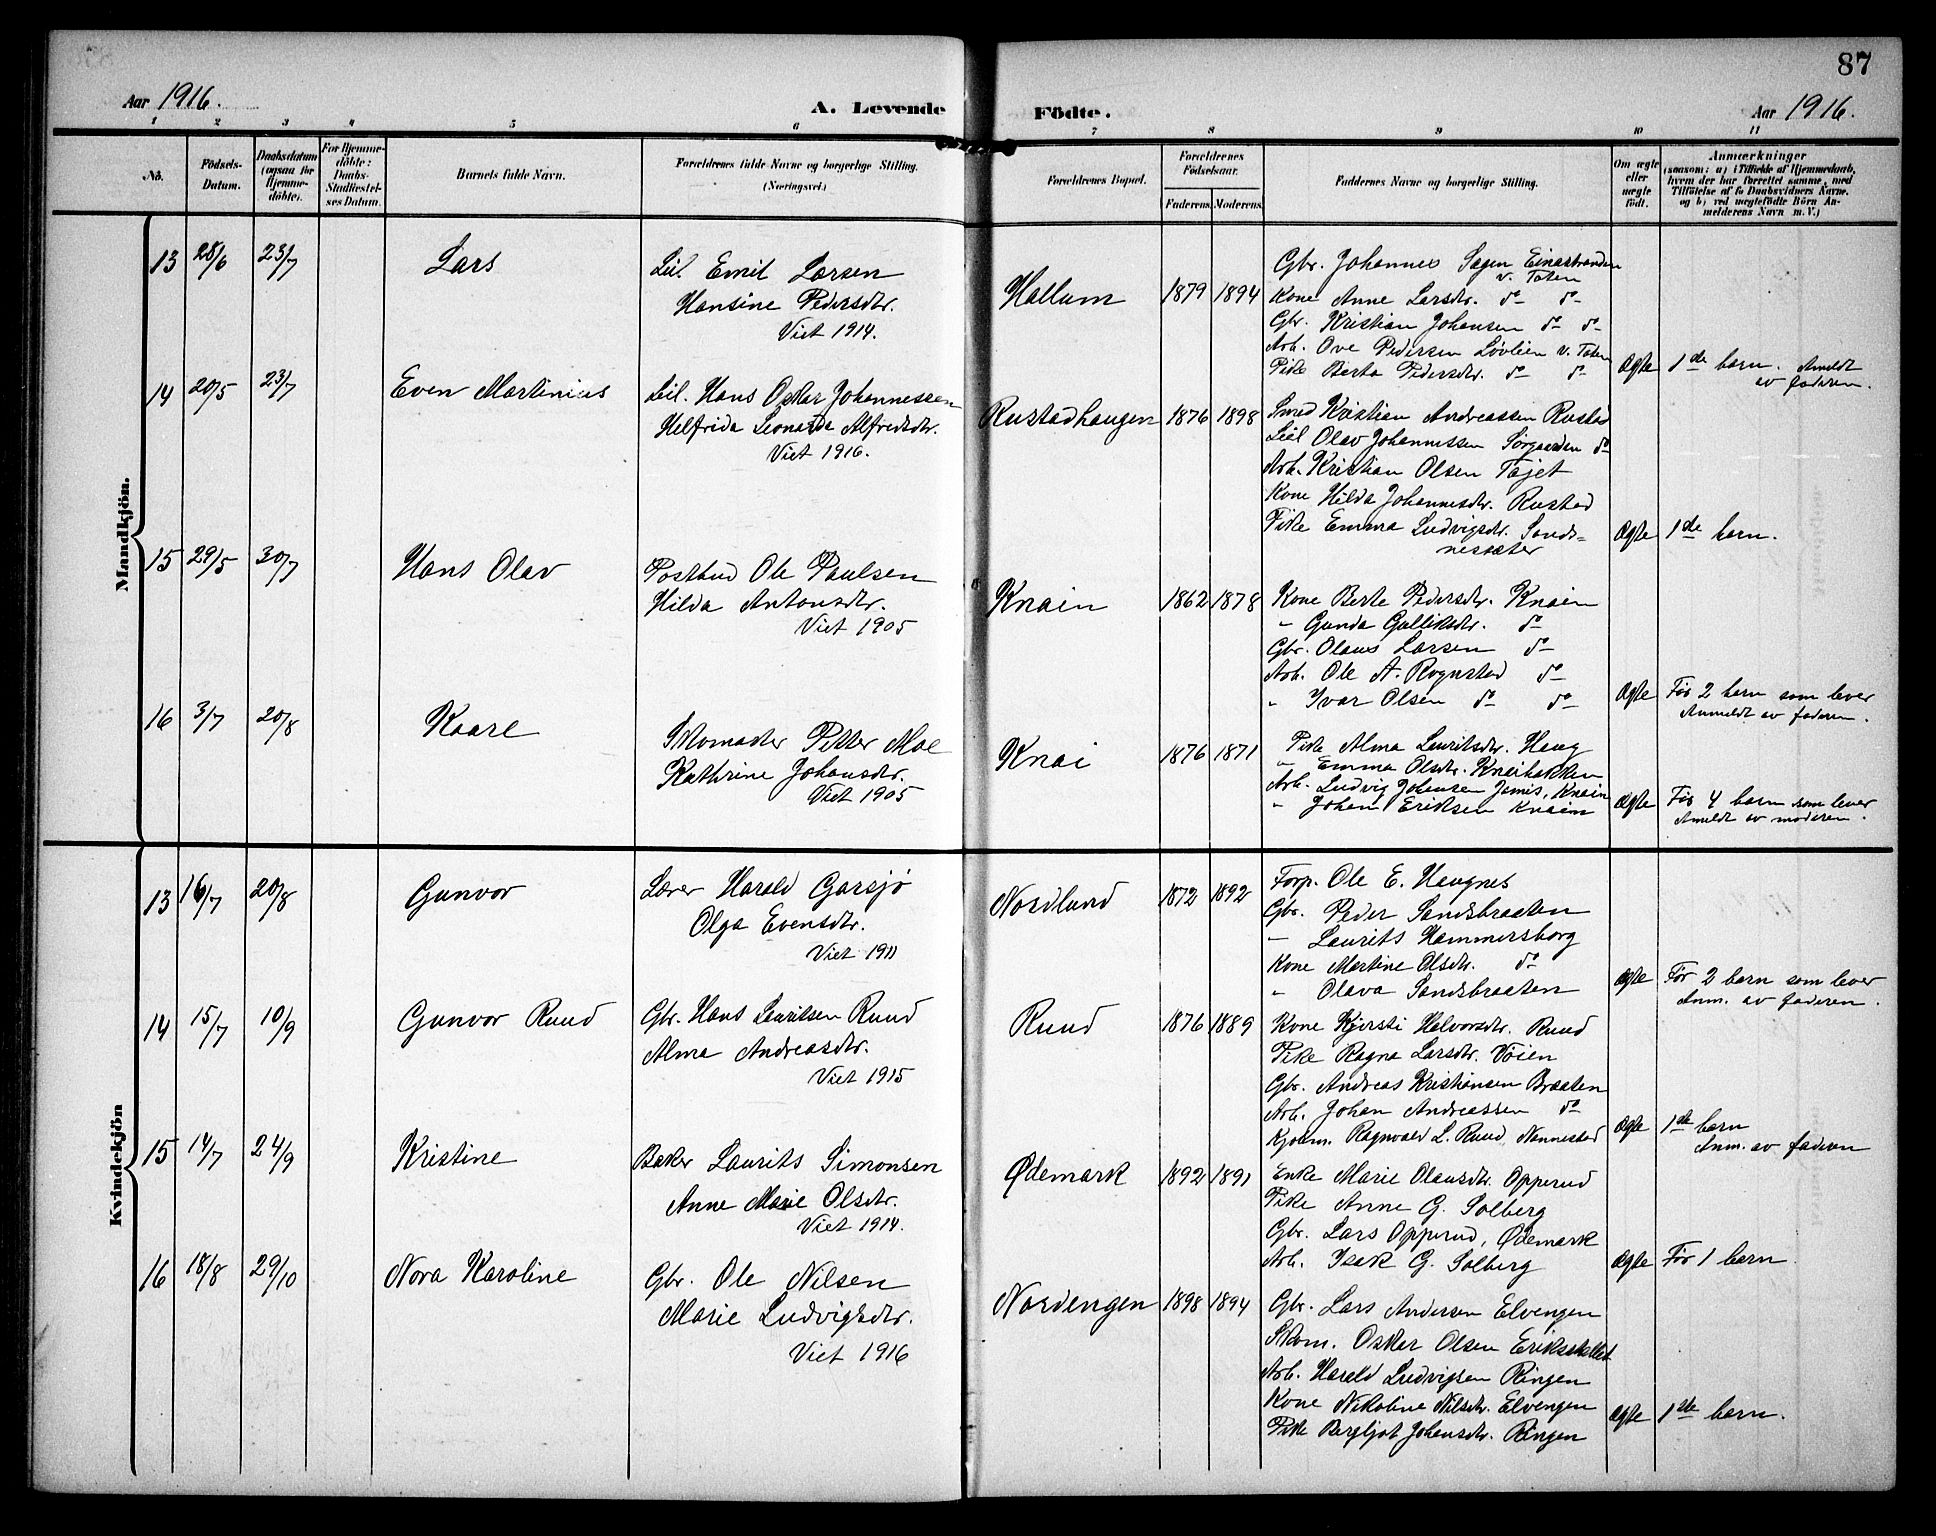 87
Aar 1916.
A. Levende Födte.
Aar 1916.
1 2 3 4 5 6 7 8 9 10 11
No.
Födsels-
Datum.
Daabsdatum
(ogsaa for
Hjemme-
döbte).
For Hjemme-
döbte:
Daabs-
Stadfæstel-
ses Datum.
Barnets fulde Navn.
Forældrenes fulde Navne og borgerlige Stilling.
(Næringsvei.)
Forældrenes Bopæl.
Forældrenes
Födselsaar.
Faderens. Moderens.
Faddernes Navne og borgerlige Stilling.
Om ægte
eller
uægte
födt.
Anmærkninger
(saasom: a) i Tilfælde af Hjemmedaab,
hvem der har forrettet samme, med
Tilföielse af to Daabsvidners Navne.
og b) ved uægtefödte Börn An-
melderens Navn m. V.)
Mandkjön.
13 28/6 23/7 Lars
Leil. Emil Larsen
Hansine Pedersdtr.
Viet 1914.
Hallum 1879 1894
Gbr. Johannes Sagen Einastranden
v. Toten
Kone Anne Larsdtr. do do
Gbr. Kristian Johansen do do
Arb. Ove Pedersen Løvlien v. Toten
Pike Berta Pedersdtr. do do
Ægte 1ste barn. Anmeldt
av faderen.
14 20/5 23/7 Even Martinius
Leil. Hans Oskar Johannessen
Helfrida Leonarda Alfredsdtr.
Viet 1916.
Rustadhaugen 1876 1898
Smed Kristian Andreassen Rustad
Leil Olav Johannessen Sørgaarden do
Arb. Kristian Olsen Tajet
Kone Hilda Johannesdtr. Rustad
Pike Emma Ludvigsdtr. Sands-
nesæter
Ægte 1ste barn.
15 29/5 30/7 Hans Olav
Postbud Ole Paulsen
Hilda Antonsdtr.
Viet 1905
Knain 1862 1878
Kone Berte Pedersdtr. Knain
" Gunda Gulliksdtr. do
Gbr. Olaus Larsen do
Arb. Ole A. Rognstad do
" Ivar Olsen do do
Ægte Før 2 barn som lever
Anmeldt av faderen.
16 3/7 20/8 Kaare
Skomaker Petter Moe
Kathrine Johansdtr.
Viet 1905
Knai 1876 1871
Pike Alma Lauritsdtr. Haug
" Emma Olsdtr. Knaibakken
Arb. Ludvig Johansen Jemis, Knain
" Johan Eriksen Knain
Ægte Før 4 barn som lever
Anmeldt av moderen.
Kvindekjön
13 16/7 20/8 Gunvor
Lærer Harald Garsjø
Olga Evensdtr.
Viet 1911
Nordlund 1872 1892
Forp. Ole E. Haugnes
Gbr. Peder Sandsbraaten
" Laurits Hammersborg
Kone Martine Olsdtr. do
" Olava Sandsbraaten
Ægte Før 2 barn som lever
Anm. av faderen.
14 15/7 10/9 Gunvor Ruud
Gbr. Hans Lauritsen Ruud
Alma Andreasdtr.
Viet 1915
Ruud 1876 1889
Kone Kjersti Halvorsdtr. Ruud
Pike Ragna Larsdtr. Vøien
Gbr. Andreas Kristiansen Braaten
Arb. Johan Andreassen do
Kjøbm. Ragnvald L. Ruud Nannestad
Ægte 1ste barn
Anm. av faderen
15 14/7 24/9 Kristine
Baker Laurits Simonsen
Anne Marie Olsdtr.
Viet 1914.
Ødemark 1892 1891
Enke Marie Olausdtr. Opperud
Pike Anne G. Solberg
Gbr. Lars Opperud, Ødemark
Arb. Isak G. Solberg
Ægte Før 1 barn.
16 18/8 29/10 Nora Karoline
Gbr. Ole Nilsen
Marie Ludvigsdtr.
Viet 1916
Nordengen 1898 1894
Gbr. Lars Andersen Elvengen
Skom. Oskar Olsen Eriksstallet
Arb. Harald Ludvigsen Ringen
Kone Nikoline Nilsdtr. Elvengen
Pike Bergljot Johansdtr. Ringen
Ægte 1ste barn.